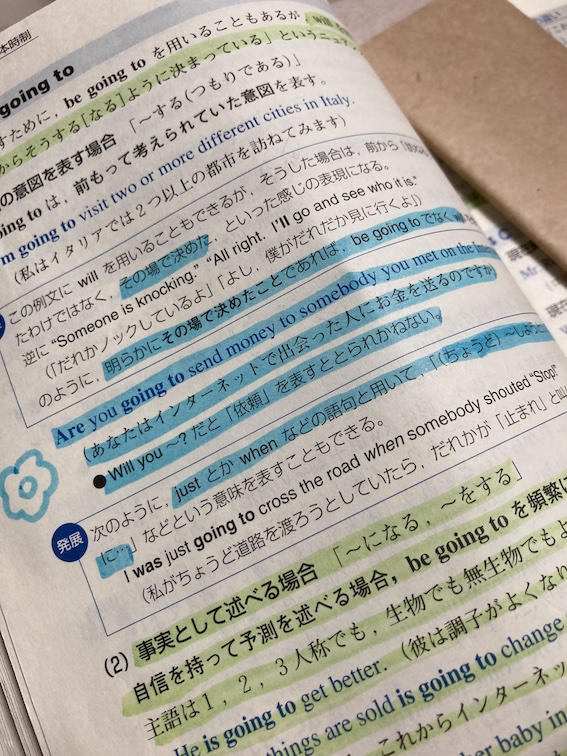 本時制
going to
すために，be going to を用いることもあるが
からそうする[なる]ように決まっている」という
の意図を表す場合 「～する(つもりである)」
oing to は，前もって考えられていた意図を表す．
m going to visit two or more different cities in Italy.
(私はイタリアでは２つ以上の都市を訪ねてみます)
この例文に will を用いることもできるが，そうした場合は，前から
たわけではなく，その場で決めた，といった感じの表現になる。
逆に “Someone is knocking.” “All right, I'll go and see who it is.”
(「だれかノックしているよ」「よし，僕がだれだか見に行くよ」)
のように，明らかにその場で決めたことであれば，be going to でなく
Are you going to send money to somebody you met on the
(あなたはインターネットで出会った人にお金を送るのですか
●Will you ～? だと「依頼」を表すととられかねない。
発展
次のように，just とか when などの語句と用いて，「(ちょうど)
に…」などという意味を表すこともできる。
I was just going to cross the road when somebody shouted “Stop!”
(私がちょうど道路を渡ろうとしていたら，だれかが「止まれ」と
(2) 事実として述べる場合 「～になる，～をする」
自信を持って予測を述べる場合，be going to を頻繁に
主語は１，２，３人称でも，生物でも無生物でもよ
He is going to get better. (彼は調子がよくなり
things are sold is going to change
これからインターネッ
baby in